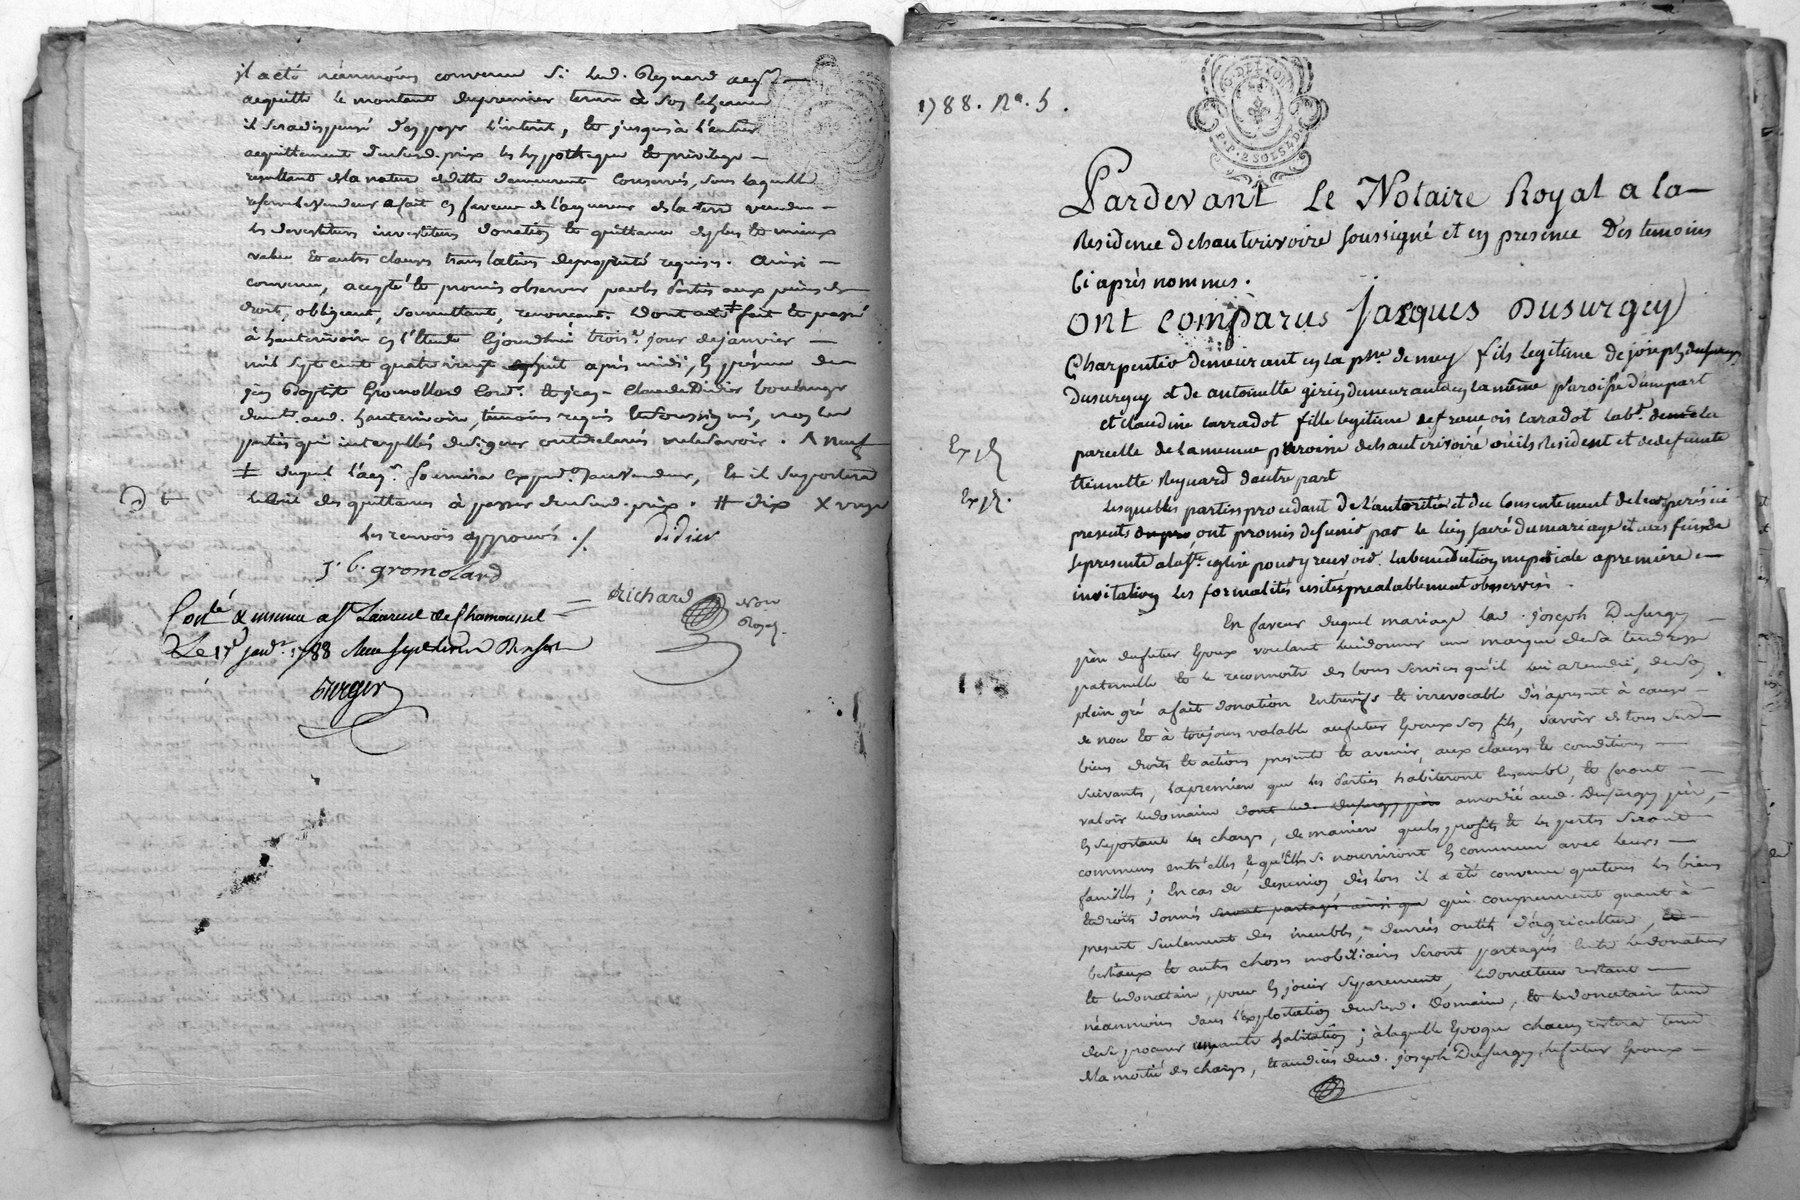 il a eté néanmoins convenu si led. Reynard acqr
acquitte le montant du premier terme à son echeance
il sera dispensé d'en payer l'interet, et jusques à l'entier
acquittement dudit prix les hypotheque et privilege
resultant de la nature dudette demeurent conservés, sous laquelle
reserve le vendeur a fait en faveur de l'acquereur de la terre vendue
les devestiture investiture donation et quittance de plus et mieux
value et autres clauses translatives de propriété requises. Ainsi
convenu, accepté et promis observer par les parties aux peines de
droit, obligeant, soumettant, renonceant. Dont acte ‡ fait et passé
à hauterivoire en l'etude cejourdhui trois.e jour de janvier
mil sept cent quatre vingt huit après midi, en presence de
jean Baptiste Gromollard Cord.r et jean-Claude Didier boulanger
dud. hauterivoire, témoins requis et soussignés, non les
parties qui interpellés de signer ont declarés ne le savoir. Λ neuf
‡ duquel l'acq.r fournira exped.on au vendeur, et il suportera
le coût des quittances à passer dudit prix. # dix X vingt
les renvois approuvés ./. Didier
J. b. gromolard
Richard
Not.
Royal.
Con.lé & insinué a St Laurent de Chamousset
Le 17 janv.r 1788
Surgey
1788. No. 5.
G. DE LYON
P.P. 2 SOLS 8 D.
Pardevant Le Notaire Royal a la
Residence de hauterivoire soussigné et en presence Des temoins
Ci après nommés.
ont comparus Jacques Dusurgey
Charpentier demeurant en la p.sse de mey fils legitime de joseph
Dusurgey et de antoinette girin demeurants en la même paroisse d'une part
et claudine carradot fille legitime de francois caradot lab.r de la
parcelle de la meme paroisse de hauterivoire ou ils resident et de defunte
ttiennette Reynard dautre part
Lesquelles parties procedant de l'autorité et du consentement de leurs perés ici
presents ont promis de sunir par le lien sacré du mariage et aux fins de
se presenté a la Ste eglise pour y recevoir la benediction nuptiale a premiere
invitation les formalités usitées prealablement observées.
Exp.
Exp.
En faveur duquel mariage led. joseph Dusurgey
père du futur Epoux voulant lui donner une marque de sa tendresse
paternelle et le reconnoitre des bons services qu'il lui a rendu, de son
plein gré a fait donation Entrevifs et irrevocable dès apresent à cause
de noce et à toujours valable au futur Epoux son fils, savoir de tous ses
biens droits et actions presents et avenir, aux clauses et conditions
suivants, la premiere que les parties habiteront ensemble, et feront
valoir le domaine dont led. Dusurgey père amodié aud. Dusurgey père,
en suportant les charges, de maniere que les profits et les pertes seront
communs entr'elles, et qu'elles se nourriront en commun avec leurs
familles ; En cas de desunion, dès lors il a été convenu que tous les biens
et droits donnés seront partagés ainsi que qui comprennent quant à
present seulement des meubles, denrées outils d'agriculture, et
bestiaux et autres choses mobiliaires seront partagés entre le donateur
et le donataire, pour en jouir separement, le donateur restant
néanmoins dans l'exploitation dudit Domaine, et le donataire tenu
de se procurer une autre habitation ; à laquelle Epoque chacun restera tenu
de la moitié des charges, et au dicès dud. joseph Dusurgey, le futur Epoux